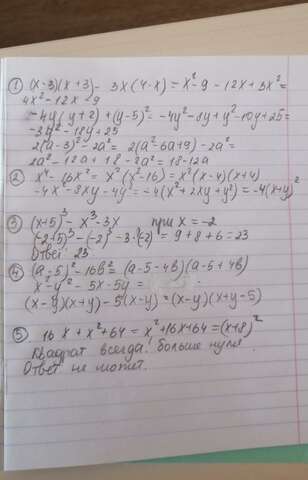 ① (x-3)(x+3) - 3x(4-x) = x²-9-12x+3x² =
4x²-12x-9
-4y(y+2)+(y-5)² = -4y²-8y+y²-10y+25=
-3y²-18y+25
2(a-3)²-2a² = 2(a²-6a+9)-2a² =
2a²-12a+18-2a² = 18-12a
② x⁴-16x² = x²(x²-16) = x²(x-4)(x+4)
-4x²-8xy-4y² = -4(x²+2xy+y²) = -4(x+y)²
③ (x+5)³-x³-3x при x = -2
(-2+5)³-(-2)³-3·(-2) = 9+8+6=23
Ответ 23
④ (a-5)²-16b² = (a-5-4b)(a-5+4b)
x²-y²-5x-5y =
(x-y)(x+y)-5(x-y) = (x-y)(x+y-5)
⑤ 16x+x²+64 = x²+16x+64 = (x+8)²
Квадрат всегда больше нуля.
Ответ не может.